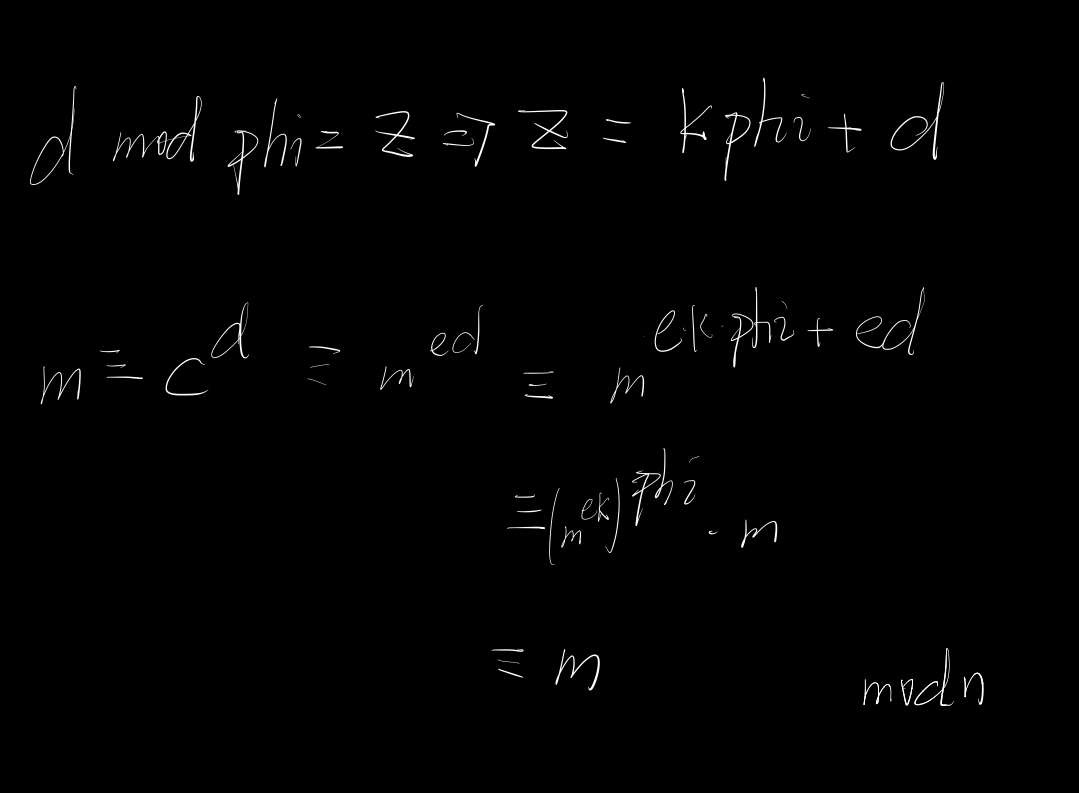 d mod phi = z ⇒ z = k phi + d
m ≡ c^d ≡ m^{ed} ≡ m^{e·k·phi + ed}
≡ (m^{ek})^{phi} · m
≡ m mod n